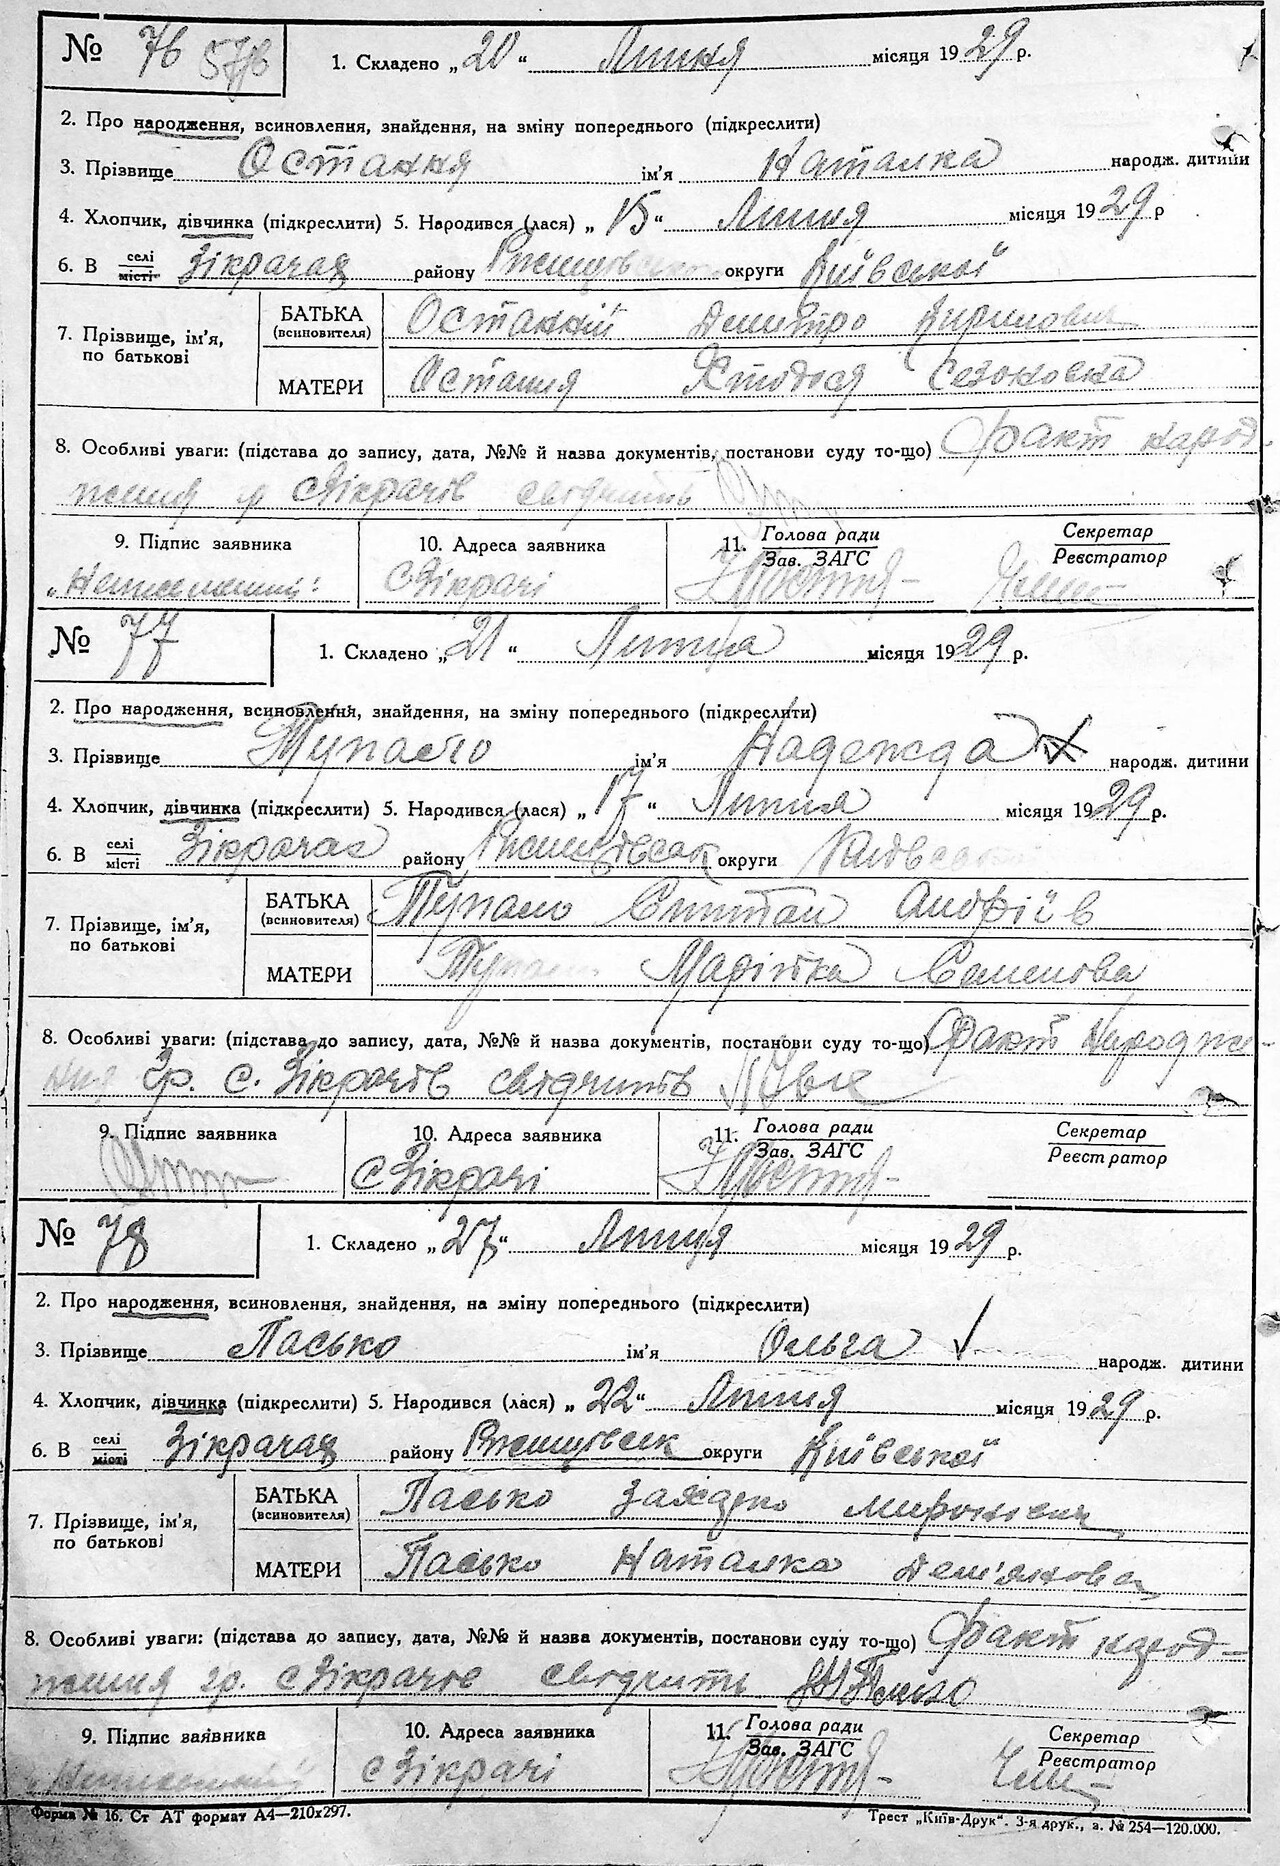 № 76 1. Складено „20“ Липня місяця 1929 р.
2. Про народження, всиновлення, знайдення, на зміну попереднього (підкреслити)
3. Прізвище Остання ім'я Наталка народж. дитини
4. Хлопчик, дівчинка (підкреслити) 5. Народився (лася) „15“ Липня місяця 1929 р
6. В селі місті Зікрачах району Ржищівсько округи Київської
7. Прізвище, ім'я, по батькові
БАТЬКА (всиновителя) Останній Демитро Кирилович
МАТЕРИ Остання
8. Особливі уваги: (підстава до запису, дата, №№ й назва документів, постанови суду то-що) Факт народ-
ження гр. с Зікрачів свідчить
9. Підпис заявника 10. Адреса заявника 11. Голова ради Зав. ЗАГС Секретар Реєстратор
„Неписьменний“ с Зікрачі
№ 77 1. Складено „21“ Липця місяця 1929 р.
2. Про народження, всиновлення, знайдення, на зміну попереднього (підкреслити)
3. Прізвище Тупало ім'я Надежда народж. дитини
4. Хлопчик, дівчинка (підкреслити) 5. Народився (лася) „17“ Липня місяця 1929 р.
6. В селі місті Зікрачах району Ржищівськ округи Київської
7. Прізвище, ім'я, по батькові
БАТЬКА (всиновителя) Тупало Андріїв
МАТЕРИ Марійка Семенова
8. Особливі уваги: (підстава до запису, дата, №№ й назва документів, постанови суду то-що) Факт Народже-
ння гр. с. Зікрачів свідчить
9. Підпис заявника 10. Адреса заявника 11. Голова ради Зав. ЗАГС Секретар Реєстратор
с Зікрачі
№ 78 1. Складено „27“ Липця місяця 1929 р.
2. Про народження, всиновлення, знайдення, на зміну попереднього (підкреслити)
3. Прізвище Пасько ім'я Ольга народж. дитини
4. Хлопчик, дівчинка (підкреслити) 5. Народився (лася) „22“ Липня місяця 1929 р.
6. В селі місті Зікрачах району Ржищівськ округи Київської
7. Прізвище, ім'я, по батькові
БАТЬКА (всиновителя) Пасько Миронієвич
МАТЕРИ Пасько Наталка Дем'янова
8. Особливі уваги: (підстава до запису, дата, №№ й назва документів, постанови суду то-що) Факт народ-
ження гр. с Зікрачів свідчить
9. Підпис заявника 10. Адреса заявника 11. Голова ради Зав. ЗАГС Секретар Реєстратор
„Неписьменний“ с Зікрачі
Форма № 16. Ст АТ формат А4—210х297. Трест „Київ-Друк“. 3-я друк., з. № 254—120.000.